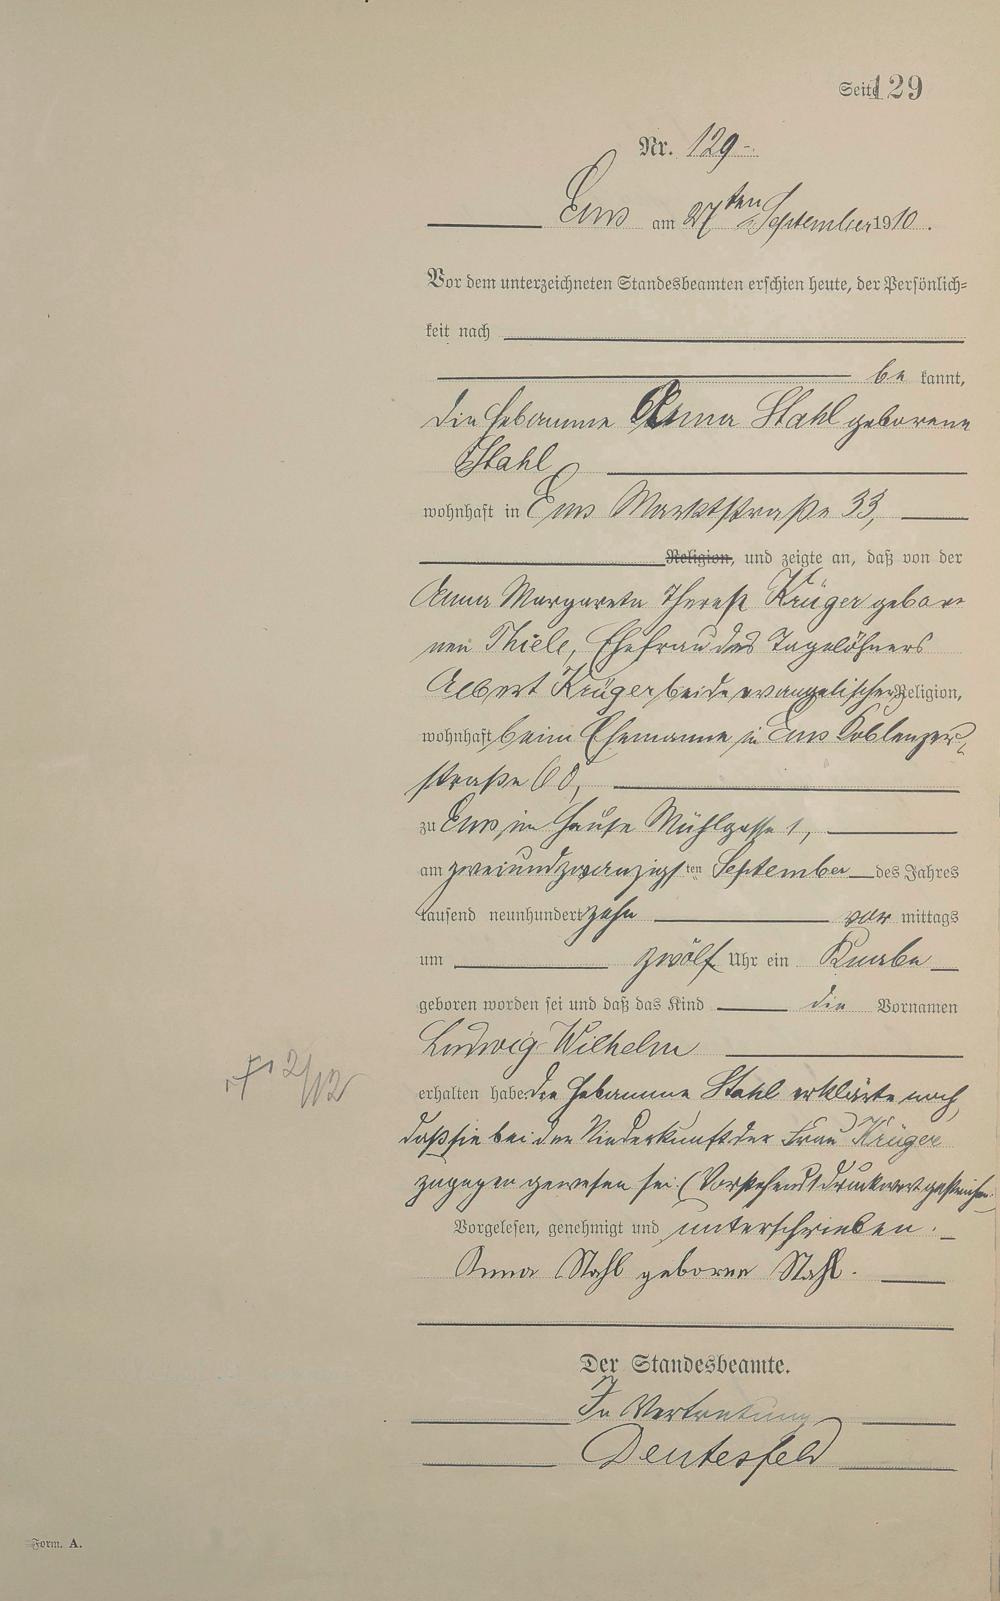 Seite 129
Nr. 129.
Ems am 27ten September 1910.
Vor dem unterzeichneten Standesbeamten erschien heute, der Persönlich-
keit nach
be kannt,
die Hebamme Anna Stahl geborene
Stahl
wohnhaft in Ems Marktstraße 33,
Religion, und zeigte an, daß von der
Anna Margareta Therese Krüger gebore-
nen Thiele, Ehefrau des Tagelöhners
Albert Krüger beide evangelischer Religion,
wohnhaft beim Ehemanne in Ems Koblenzer-
straße 60,
zu Ems im Hause Mühlgasse 1,
am zweiundzwanzigsten September des Jahres
tausend neunhundert zehn vor mittags
um zwölf Uhr ein Knabe
geboren worden sei und daß das Kind die Vornamen
Ludwig Wilhelm
erhalten habe. Die Hebamme Stahl erklärte noch,
daß sie bei der Niederkunft der Frau Krüger
zugegen gewesen sei. (Vorstehend 1 Druckwort gestrichen.)
Vorgelesen, genehmigt und unterschrieben.
Anna Stahl geborne Stahl.
Der Standesbeamte.
In Vertretung
Form. A.